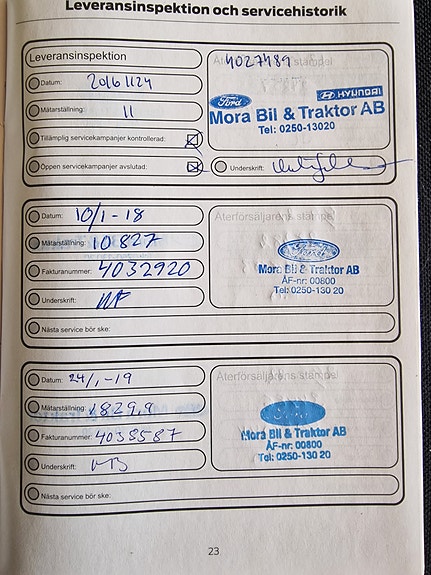 Leveransinspektion och servicehistorik
Leveransinspektion
Datum: 20161124
Mätarställning: 11
Tillämplig servicekampanjer kontrollerad:
Öppen servicekampanjer avslutad:
4027489
Ford HYUNDAI
Mora Bil & Traktor AB
Tel: 0250-13020
Underskrift:
Datum: 10/1-18
Mätarställning: 10827
Fakturanummer: 4032920
Underskrift:
Nästa service bör ske:
Återförsäljarens stämpel
Ford
Mora Bil & Traktor AB
ÅF-nr: 00800
Tel: 0250-130 20
Datum: 24/1-19
Mätarställning: 1829,9
Fakturanummer: 4038587
Underskrift:
Nästa service bör ske:
Återförsäljarens stämpel
Mora Bil & Traktor AB
ÅF-nr: 00800
Tel: 0250-130 20
23